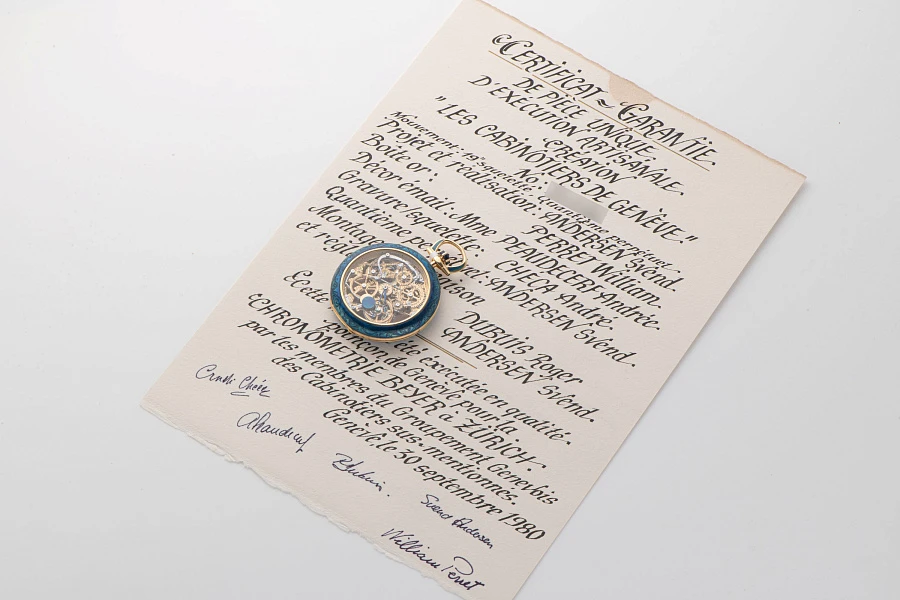 CERTIFICAT ~ GARANTIE.
DE PIÈCE UNIQUE
D'EXÉCUTION ARTISANALE.
CRÉATION
"LES CABINOTIERS DE GENÈVE."
No:
Mouvement: 19''' squelette. Quantième perpétuel
Projet et réalisation: ANDERSEN Svend.
Boîte or: PERRET William.
Décor émail: Mme PEAUDECERF Andrée.
Gravure/squelette: CHECA André.
Quantième ANDERSEN Svend.
Montage
et DUBUIS Roger
ANDERSEN Svend.
Cette été exécutée en qualité
poinçon de Genève pour la
CHRONOMÉTRIE BEYER à ZÜRICH.
par les membres du Groupement Genevois
des Cabinotiers sus-mentionnés.
Genève, le 30 septembre 1980
Svend Andersen
William Perret